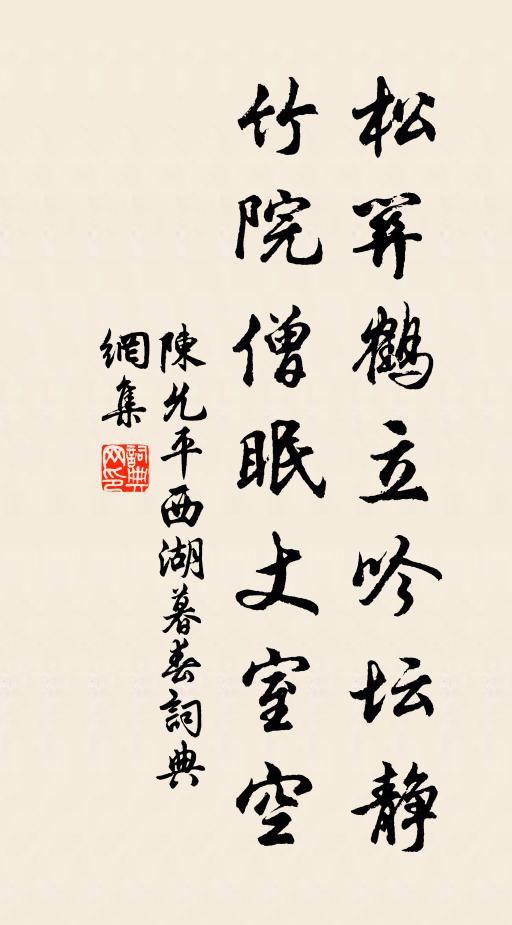 松關鶴立吟坛静
竹院僧眠丈室空
陳允平西湖暮春詞典
網集
詞典
网印